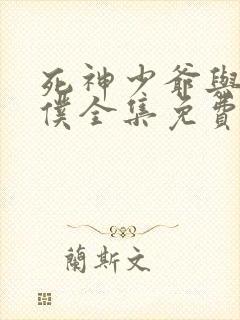 死神少爺與
僕全集免費
蘭斯文